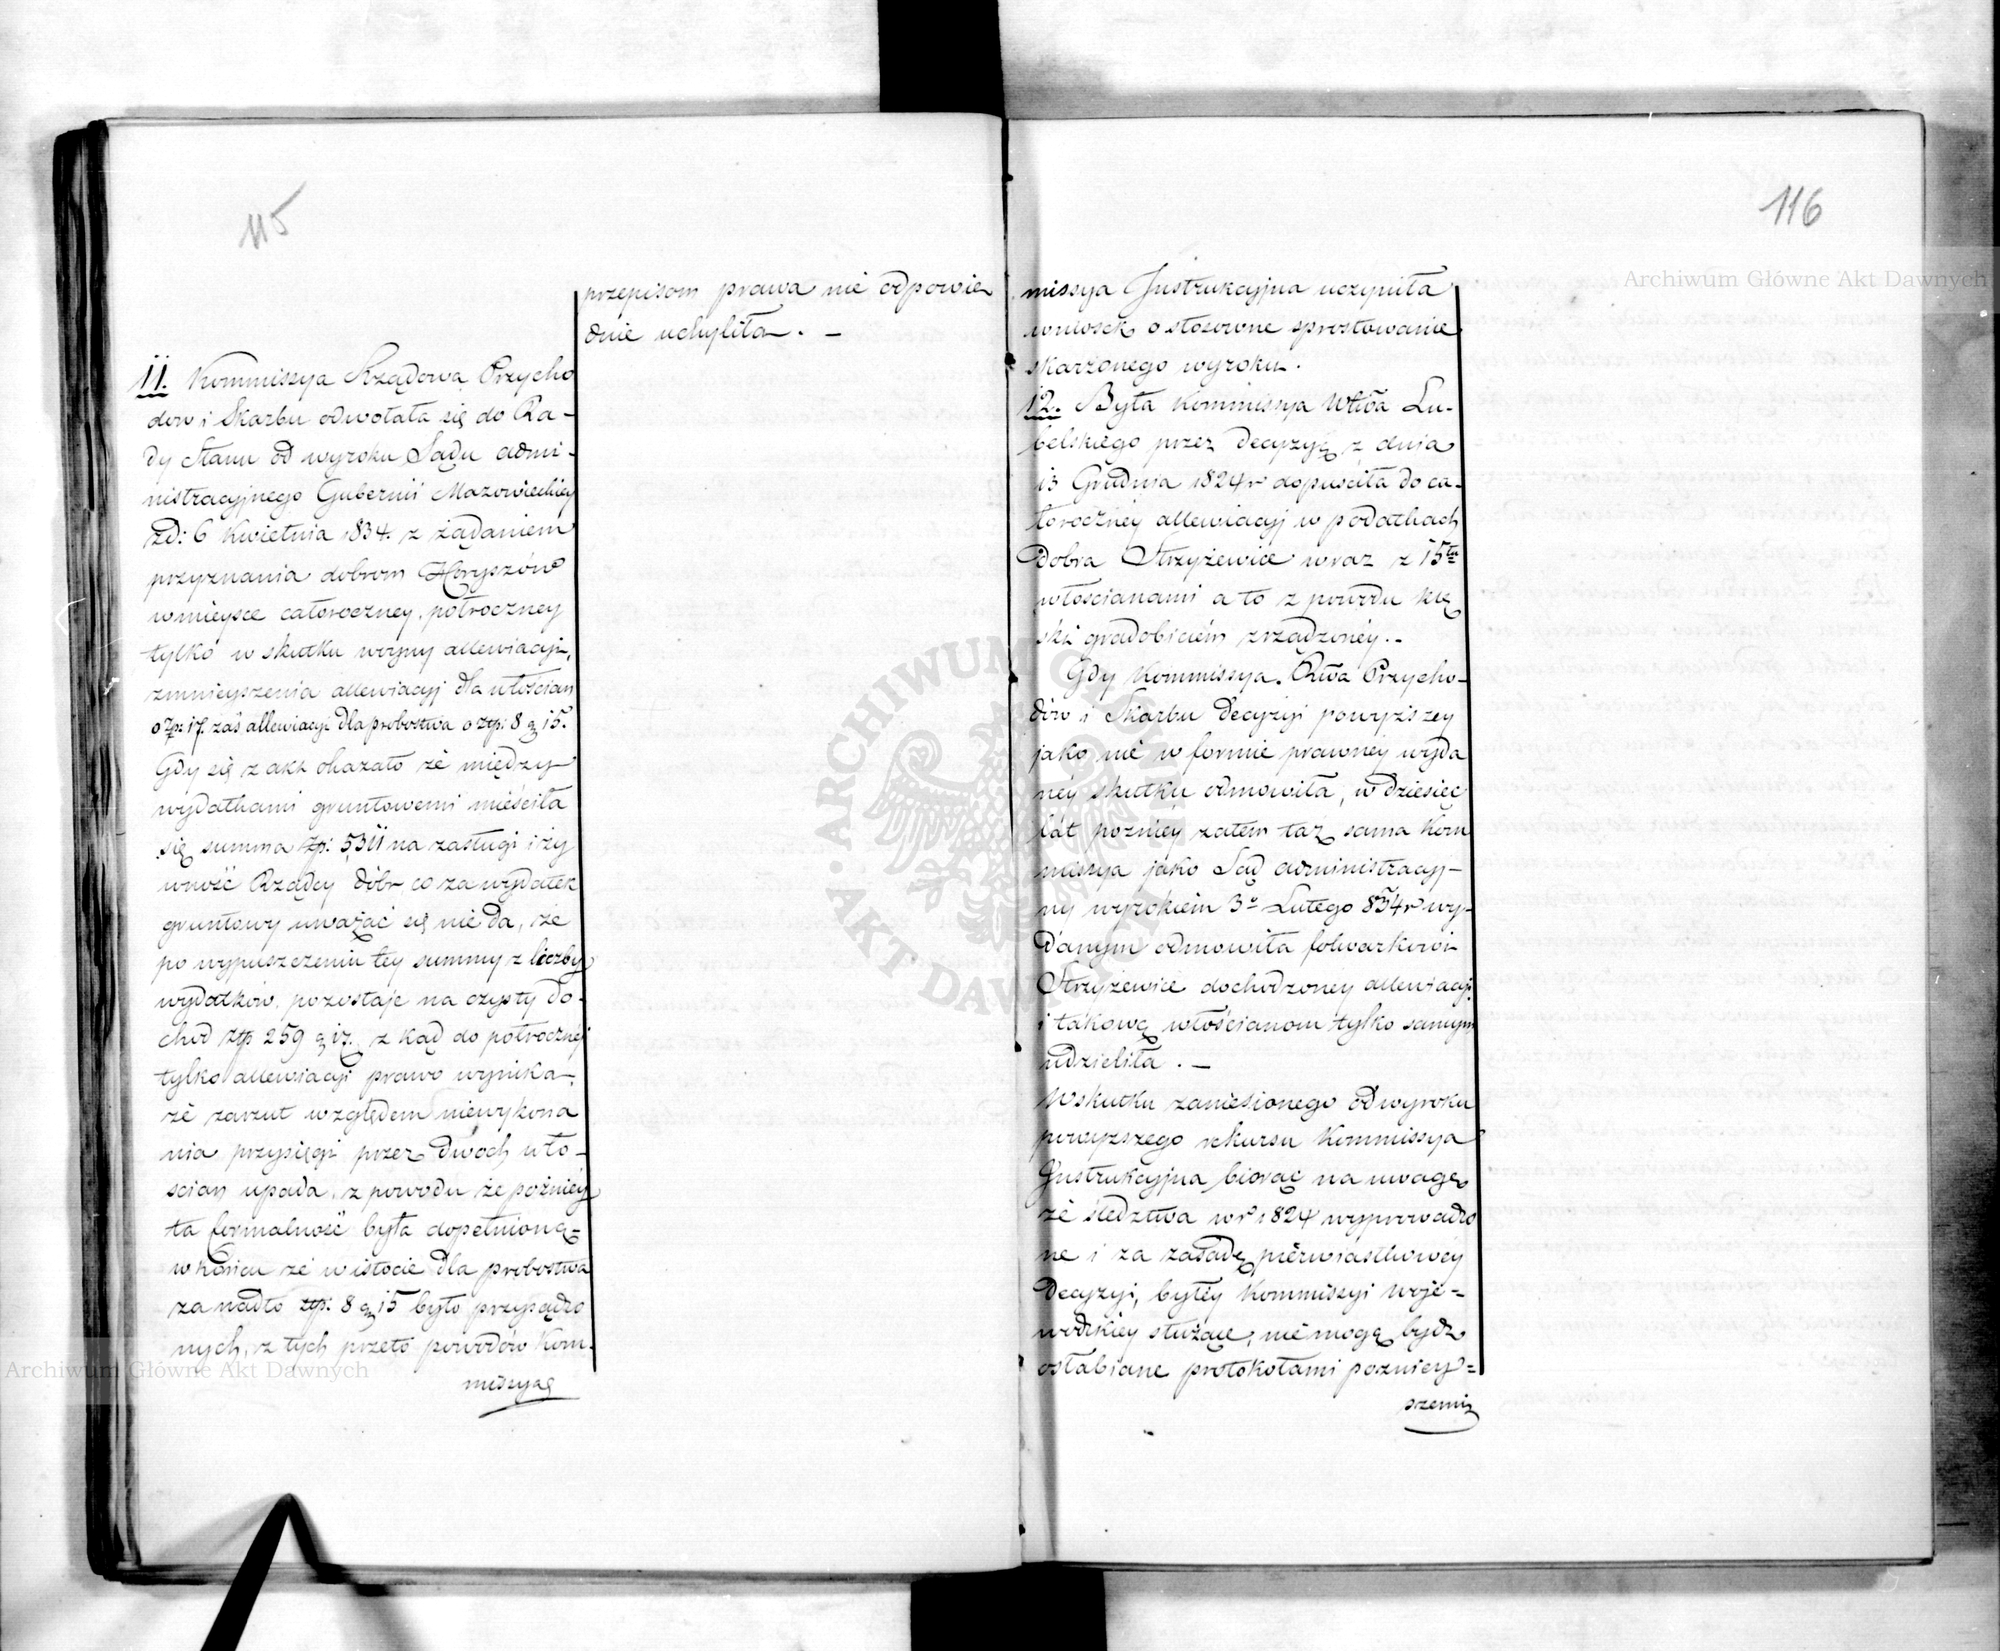 115
przepisom prawa nie odpowie
dnie uchyliła. —
11. Kommissya Rządowa Przycho
dow i Skarbu odwołała się do Ra-
dy Stanu od wyroku Sądu admi-
nistracyjnego Gubernii Mazowieckiey
zd: 6 Kwietnia 1834. z żądaniem
przyznania dobrom Horyszów
wmieysce całoroczney, półroczney
tylko w skutku woyny allewiacyi,
zmnieyszenia allewiacyj dla włościan
o zp: 17. zaś allewiacyi dla probostwa o ztp: 8 g 15.
Gdy się z akt okazało że między
wydatkami gruntowemi mieściła
się summa ztp: 5,311 na zasługi i ży
wność Rządcy dóbr co za wydatek
gruntowy uważać się nie da, że
po wypuszczeniu tey summy z liczby
wydatków, pozostaje na czysty do-
chod ztp 259 g 17. z kąd do półrocznéj
tylko allewiacyi prawo wynika,
że zarzut względem niewykona
nia przysięgi przez dwóch wło-
scian upada, z powodu że pożniey
ta formalność była dopełnioną-
w końcu że w istocie dla probostwa
za nadto ztp: 8 g 15 było przysądzo
nych, z tych przeto powodów Kom-
missya
116
missya Instrukcyjna uczyniła
wniosek o stosowne sprostowanie
skarżonego wyroku.
12. Była Kommissya Wttwa Lu-
belskiego przez decyzyę z dnia
13 Grudnia 1824 r dopuściła do ca-
łoroczney allewiacyj w podatkach
dobra Strzyżewice wraz z 15tu
włościanami a to z powodu klę
ski gradobiciem zrządzoney.-
Gdy Kommissya Rwa Przycho-
dów i Skarbu decyzyi powyższey
jako nie w formie prawney wyda
néy skutku odmowiła, w dziesięć
lat pozniéy zatem taż sama Kom
missya jako Sąd administracyj-
ny wyrokiem 3o Lutego 834 r wy-
danym odmowiła folwarkowi
Strzyżewice dochodzoney allewiacyi
i takową włościanom tylko samym
udzieliła. —
Wskutku zaniesionego od wyroku
powyższego rekursu Kommissya
Instrukcyjna biorąc na uwagę
że śledztwa w r 1824 wyprowadzo
ne i za zasadę piérwiastkowéy
Decyzyi, byłéy Kommissyi Woje-
wodzkiey służące, nie mogą bydz
osłabiane protokołami pozniey-
szemi
Archiwum Główne Akt Dawnych
Archiwum Główne Akt Dawnych
ARCHIWUM GŁÓWNE AKT DAWNYCH